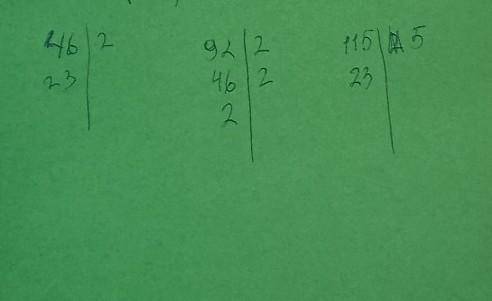 46 | 2 92 | 2 115 | 5
23 | 46 | 2 23 |
2 |